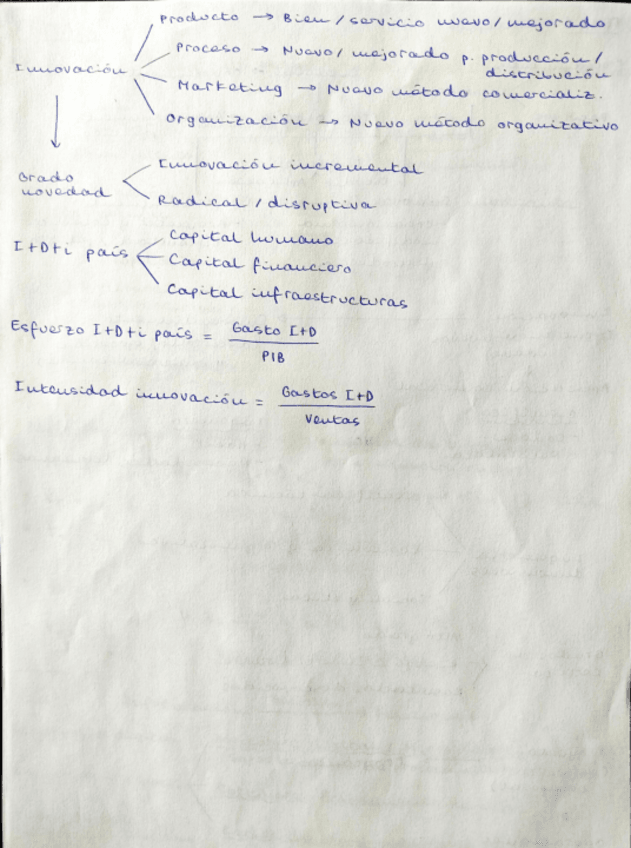 Producto → Bien / servicio nuevo / mejorado
Proceso → Nuevo / mejorado p. producción /
distribución
Innovación
Marketing → Nuevo método comercializ.
Organización → Nuevo método organizativo
Innovación incremental
Grado
novedad
Radical / disruptiva
Capital humano
I+D+i país
Capital financiero
Capital infraestructuras
Esfuerzo I+D+i país = Gasto I+D
PIB
Intensidad innovación = Gastos I+D
Ventas